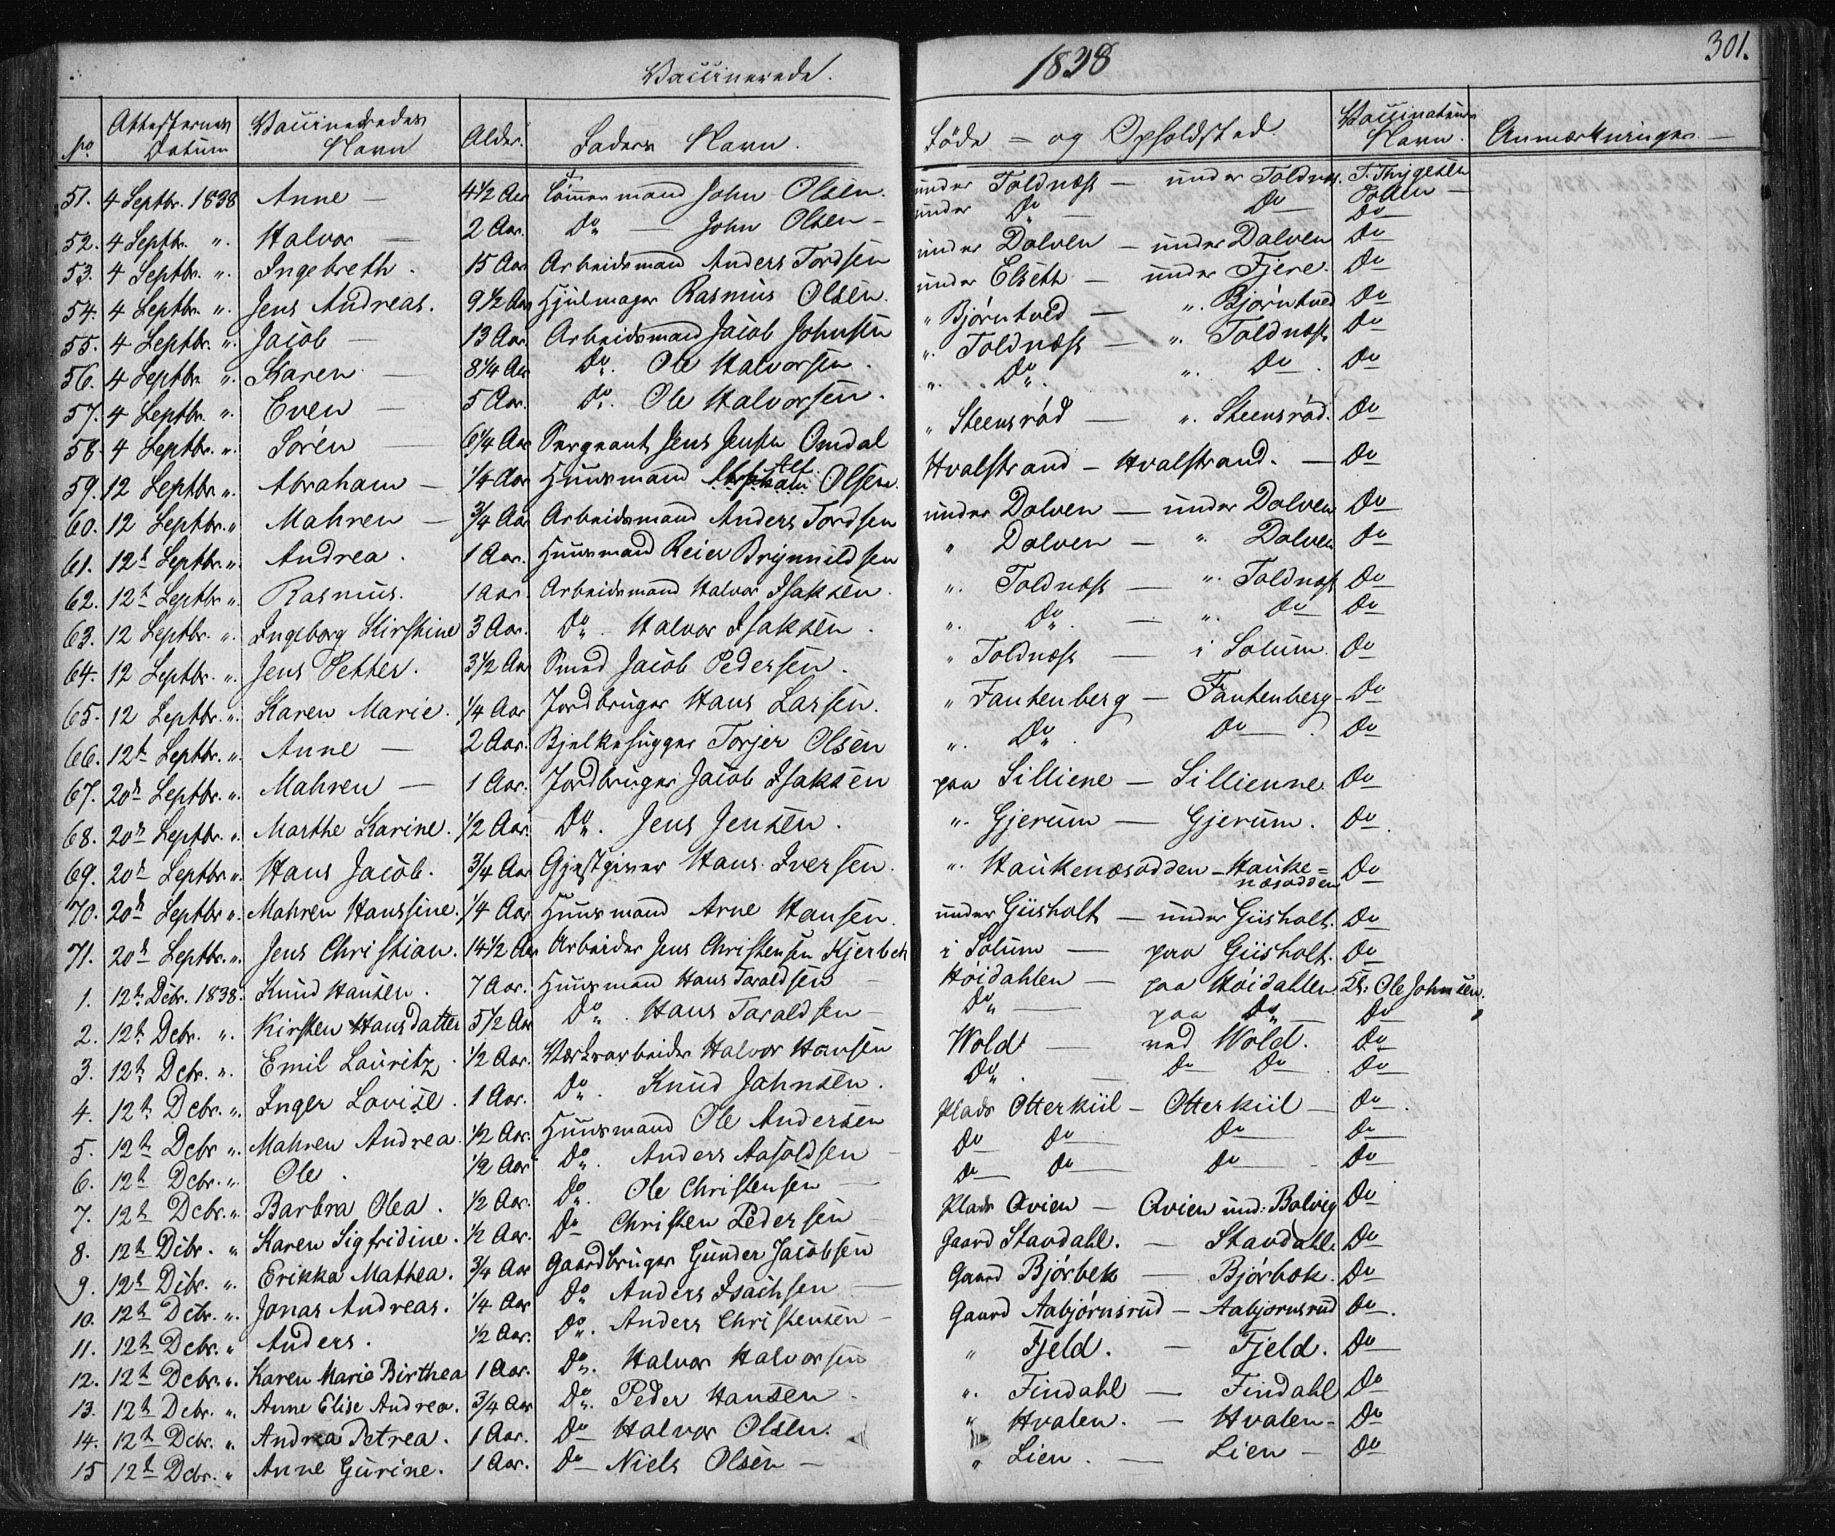 Vaccinerede. 1838 301.
No Attesternes Datum Vaccineredes Navn Alder. Faders Navn. Føde- og Opholdsted. Vaccinateurs Navn. Anmærkninger
51. 4 Septbr. 1838 Anne — 4½ Aar Tømmermand John Olsen. under Toldnæs — under Toldnæs. T. Thrygesen Tollen —
52. 4 Septbr. ". Halvor — 2 Aar. Do — John Olsen — under Do — Do — Do
53. 4 Septbr. ". Ingebreth. 15 Aar Arbeidsmand Anders Tordsen under Dolven — under Dolven Do
54. 4 Septbr. ". Jens Andreas. 9½ Aar Hjulmager Rasmus Olsen. under Elseth — under Fjere. Do
55. 4 Septbr. ". Jacob — 13 Aar. Arbeidsmand Jacob Johnsen " Bjørntvedt — ". Bjørntved Do
56. 4 Septbr. ". Karen — 8¼ Aar Do. Ole Halvorsen. ". Toldnæs — ". Toldnæs Do
57. 4 Septbr. ". Even — 5 Aar. Do. Ole Halvorsen. ". Do. ". Do. Do
58. 4 Septbr. ". Sørén — 6¼ Aar Sergeant Jens Jensen Omdal " Steensrød — ". Steensrød. Do
59. 12 Septbr. ". Abraham — ¼ Aar Huusmand Olsen. Hvalstrand — Hvalstrand. — Do
60. 12 Septbr. " Mahren — ¾ Aar Arbeidsmand Anders Tordsen under Dolven — under Dolven Do
61. 12te Septbr. ". Andrea. 1 Aar. Huusmand Reier Brynnildsen " Dolven — " Dolven Do
62. 12t Septbr ". Rasmus. 1 Aar. Arbeidsmand Halvor Isaksen. ". Toldnæs — ". Toldnæs Do
63. 12 Septbr. ". Ingeborg Kirstine 3 Aar. Do. Halvor Isaksen. ". Do. — ". Do Do
64. 12 Septbr. ". Jens Petter. 3½ Aar Smed Jacob Pedersen. " Toldnæs — i Solum. Do
65. 12 Septbr. ". Karen Marie. ¼ Aar Jordbruger Hans Larsen. " Fantenberg — Fantenberg — Do
66. 12t Septbr. ". Anne — 2 Aar. Bjelkehugger Torjer Olsen ". Do. Do. Do
67. 20de Septbr. ". Mahren — 1 Aar. Jordbruger Jacob Isaksen paa Silliene — Sillienne Do
68. 20de Septbr. ". Marthe Karine. ½ Aar Do. Jens Jensen. ". Gjerum — Gjerum. Do.
69. 20de Septbr ". Hans Jacob. ¾ Aar Gjestgiver Hans Iversen. ". Haukenæsodden — Haukenæsodden Do
70. 20de Septbr ". Mahren Hanssine. ¼ Aar Huusmand Arne Hansen. under Giisholt — under Giisholt. Do
71. 20de Septbr. ". Jens Christian. 14½ Aar Arbeider Jens Christensen Kjerbek i Solum — paa Giisholt. Do
1. 12te Debr. 1838. Knud Hansen. 7 Aar. Huusmand Hans Taraldsen Høidahlen — paa Høidahlen. Ole Johnsen.
2. 12te Dcbr. ". Kirsten Hansdatter 5½ Aar Do. Hans Taraldsen — Do — paa Do — Do
3. 12te Dcbr. ". Emil Lauritz. ½ Aar. Værksarbeider Halvor Hansen Wold — ved Wold. Do
4. 12te Dcbr. ". Inger Lovise. 1 Aar. Do. Knud Jahnsen. Do. — Do Do. Do
5. 12te Dcbr. ". Mahren Andrea. ½ Aar. Huusmand Ole Andersen Plads Otterkiil — Otterkiil — Do.
6. 12te Dcbr. ". Ole. ½ Aar Do. Anders Aasoldsen — Do Do — Do — Do
7. 12te Dcbr. ". Barbra Olea. ½ Aar. Do. Ole Christensen — Do Do — Do — Do
8. 12te Dcbr. " Karen Sigfridine. ½ Aar. Do Christen Pedersen — Plads Qvien — Qvien und: Bolvig Do
9. 12te Dcbr. " Erikka Mathea. ¾ Aar Gaardbruger Gunder Jacobsen Gaard Stavdahl. — Stavdahl. Do
10. 12te Dcbr. ". Jonas Andreas. ¼ Aar Do Anders Isachsen — Gaard Bjørbek — Bjørbæk. Do
11. 12te Dcbr. " Anders. ½ Aar. Do. Anders Christensen — Gaard Aabjørnsrud — Aabjornsrud Do.
12. 12te Dcbr. ". Karen Marie Birthea 1 Aar. Do. Halvor Halvorsen " Fjeld. — Fjeld. Do
13. 12te Dcbr. " Anne Elise Andrea. ¾ Aar Do. Peder Hansen. ". Findahl — Findahl Do
14. 12te Dcbr. ". Andrea Petrea. 1 Aar. Do Halvor Olsen. " Hvalen. — Hvalen — Do
15 12te Dcbr. " Anne Gurine. 1 Aar. Do — Niels Olsen — " Lien. — Lien — Do